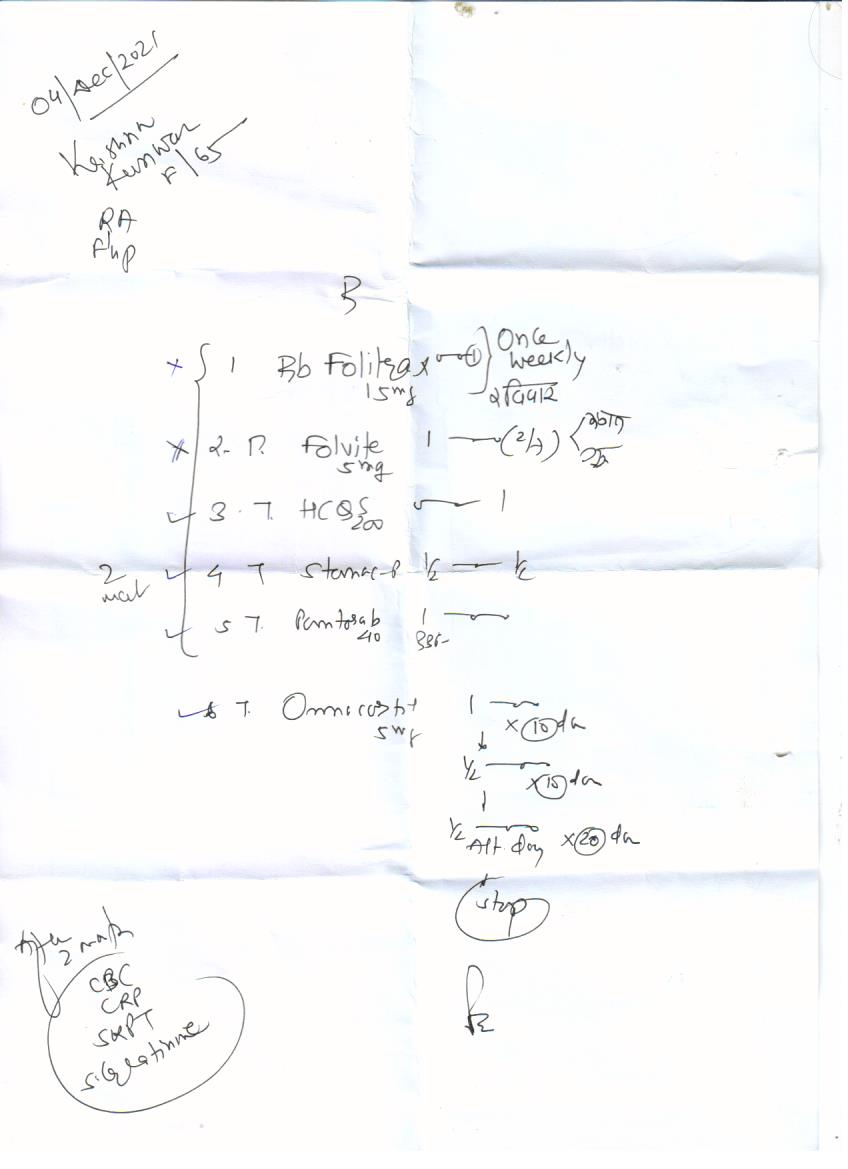 04/Dec/2021
Krishna
Kunwar
F/65
RA
F/up
R
1 Rb Folitrax ① Once
weekly
15mg रविवार
2- T. Folvite 1 (2/7)
5mg
3. T. HCQS 1
200
2
4 T Stamac-P ½ ½
5 T. Pantosab 1
40 BBF
6 T. Omnacortil 1
5mg × 10 da
½ × 10 da
½ Alt. day × 20 da
stop
After
2 month
CBC
CRP
SGPT
S. Creatinine